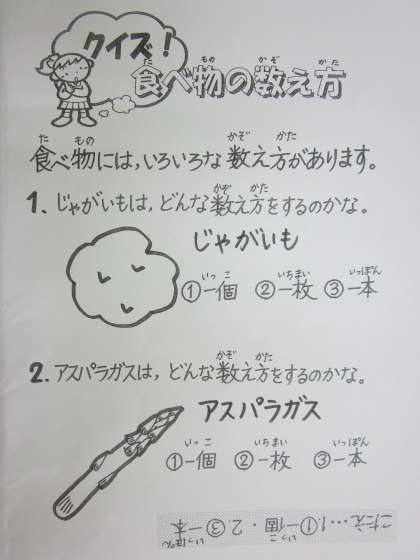 クイズ!
食べ物の数え方
食べ物には,いろいろな数え方があります。
1.じゃがいもは,どんな数え方をするのかな。
じゃがいも
①一個 ②一枚 ③一本
2.アスパラガスは,どんな数え方をするのかな。
アスパラガス
①一個 ②一枚 ③一本
こたえ…1.①一個・2.③一本